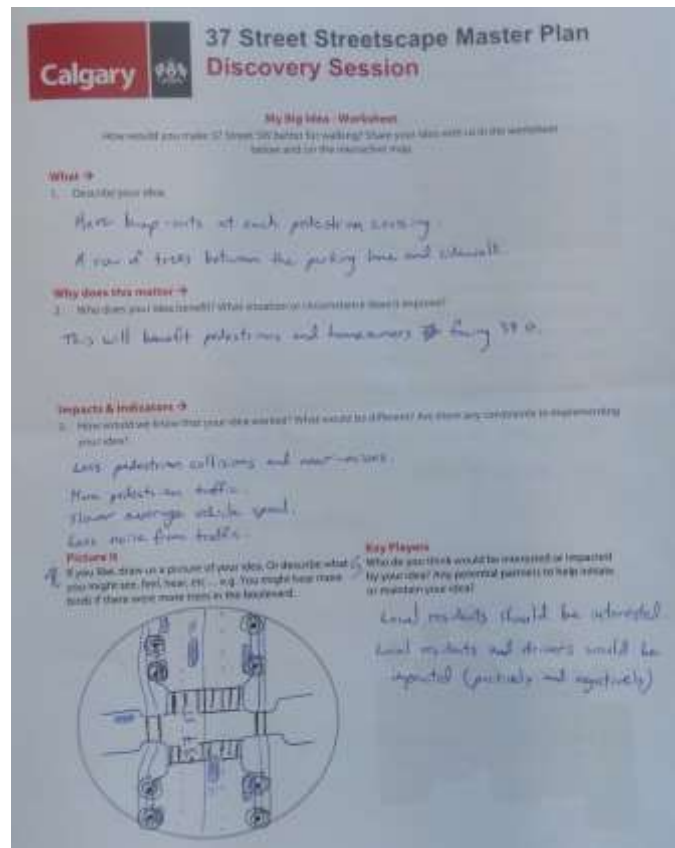 37 Street Streetscape Master Plan
Calgary
Discovery Session
My Big Idea - Worksheet
How would you make 37 Street SW better for walking? Share your idea with us in the worksheet
below and on the interactive map.
What →
1. Describe your idea
Have bump-outs at each pedestrian crossing.
A row of trees between the parking lane and sidewalk.
Why does this matter →
2. Who does your idea benefit? What situation or circumstance does it improve?
This will benefit pedestrians and homeowners facing
Impacts & Indicators →
3. How would we know that your idea worked? What would be different? Are there any constraints to implementing
your idea?
Less pedestrian collisions and near-misses.
More pedestrian traffic.
Slower average vehicle speed.
Less noise from traffic.
Picture It
If you like, draw us a picture of your idea. Or describe what
you might see, feel, hear, etc... e.g. You might hear more
birds if there were more trees in the boulevard.
Key Players
Who do you think would be interested or impacted
by your idea? Any potential partners to help initiate
or maintain your idea?
Local residents should be interested.
Local residents and drivers would be
impacted (positively and negatively)